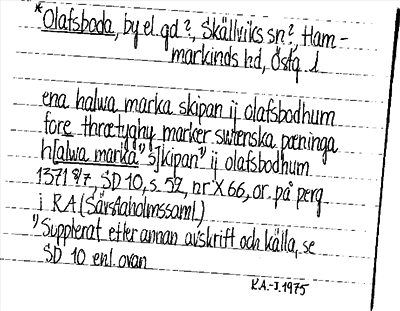 *Olafsboda, by el. gd?, Skällviks sn?, Ham-
markinds hd, Östg. l
ena halwa marka skipan ij olafsbodhum
fore thrætyghu marker swænska pæninga
h[alwa marka¹⁾ s]kipan¹⁾ ij olafsbodhum
1371 8/7, SD 10, s. 52, nr X 66, or. på perg
i RA (Sävstaholmssaml.)
¹⁾ Supplerat efter annan avskrift och källa, se
SD 10 enl. ovan
K.A.-J. 1975